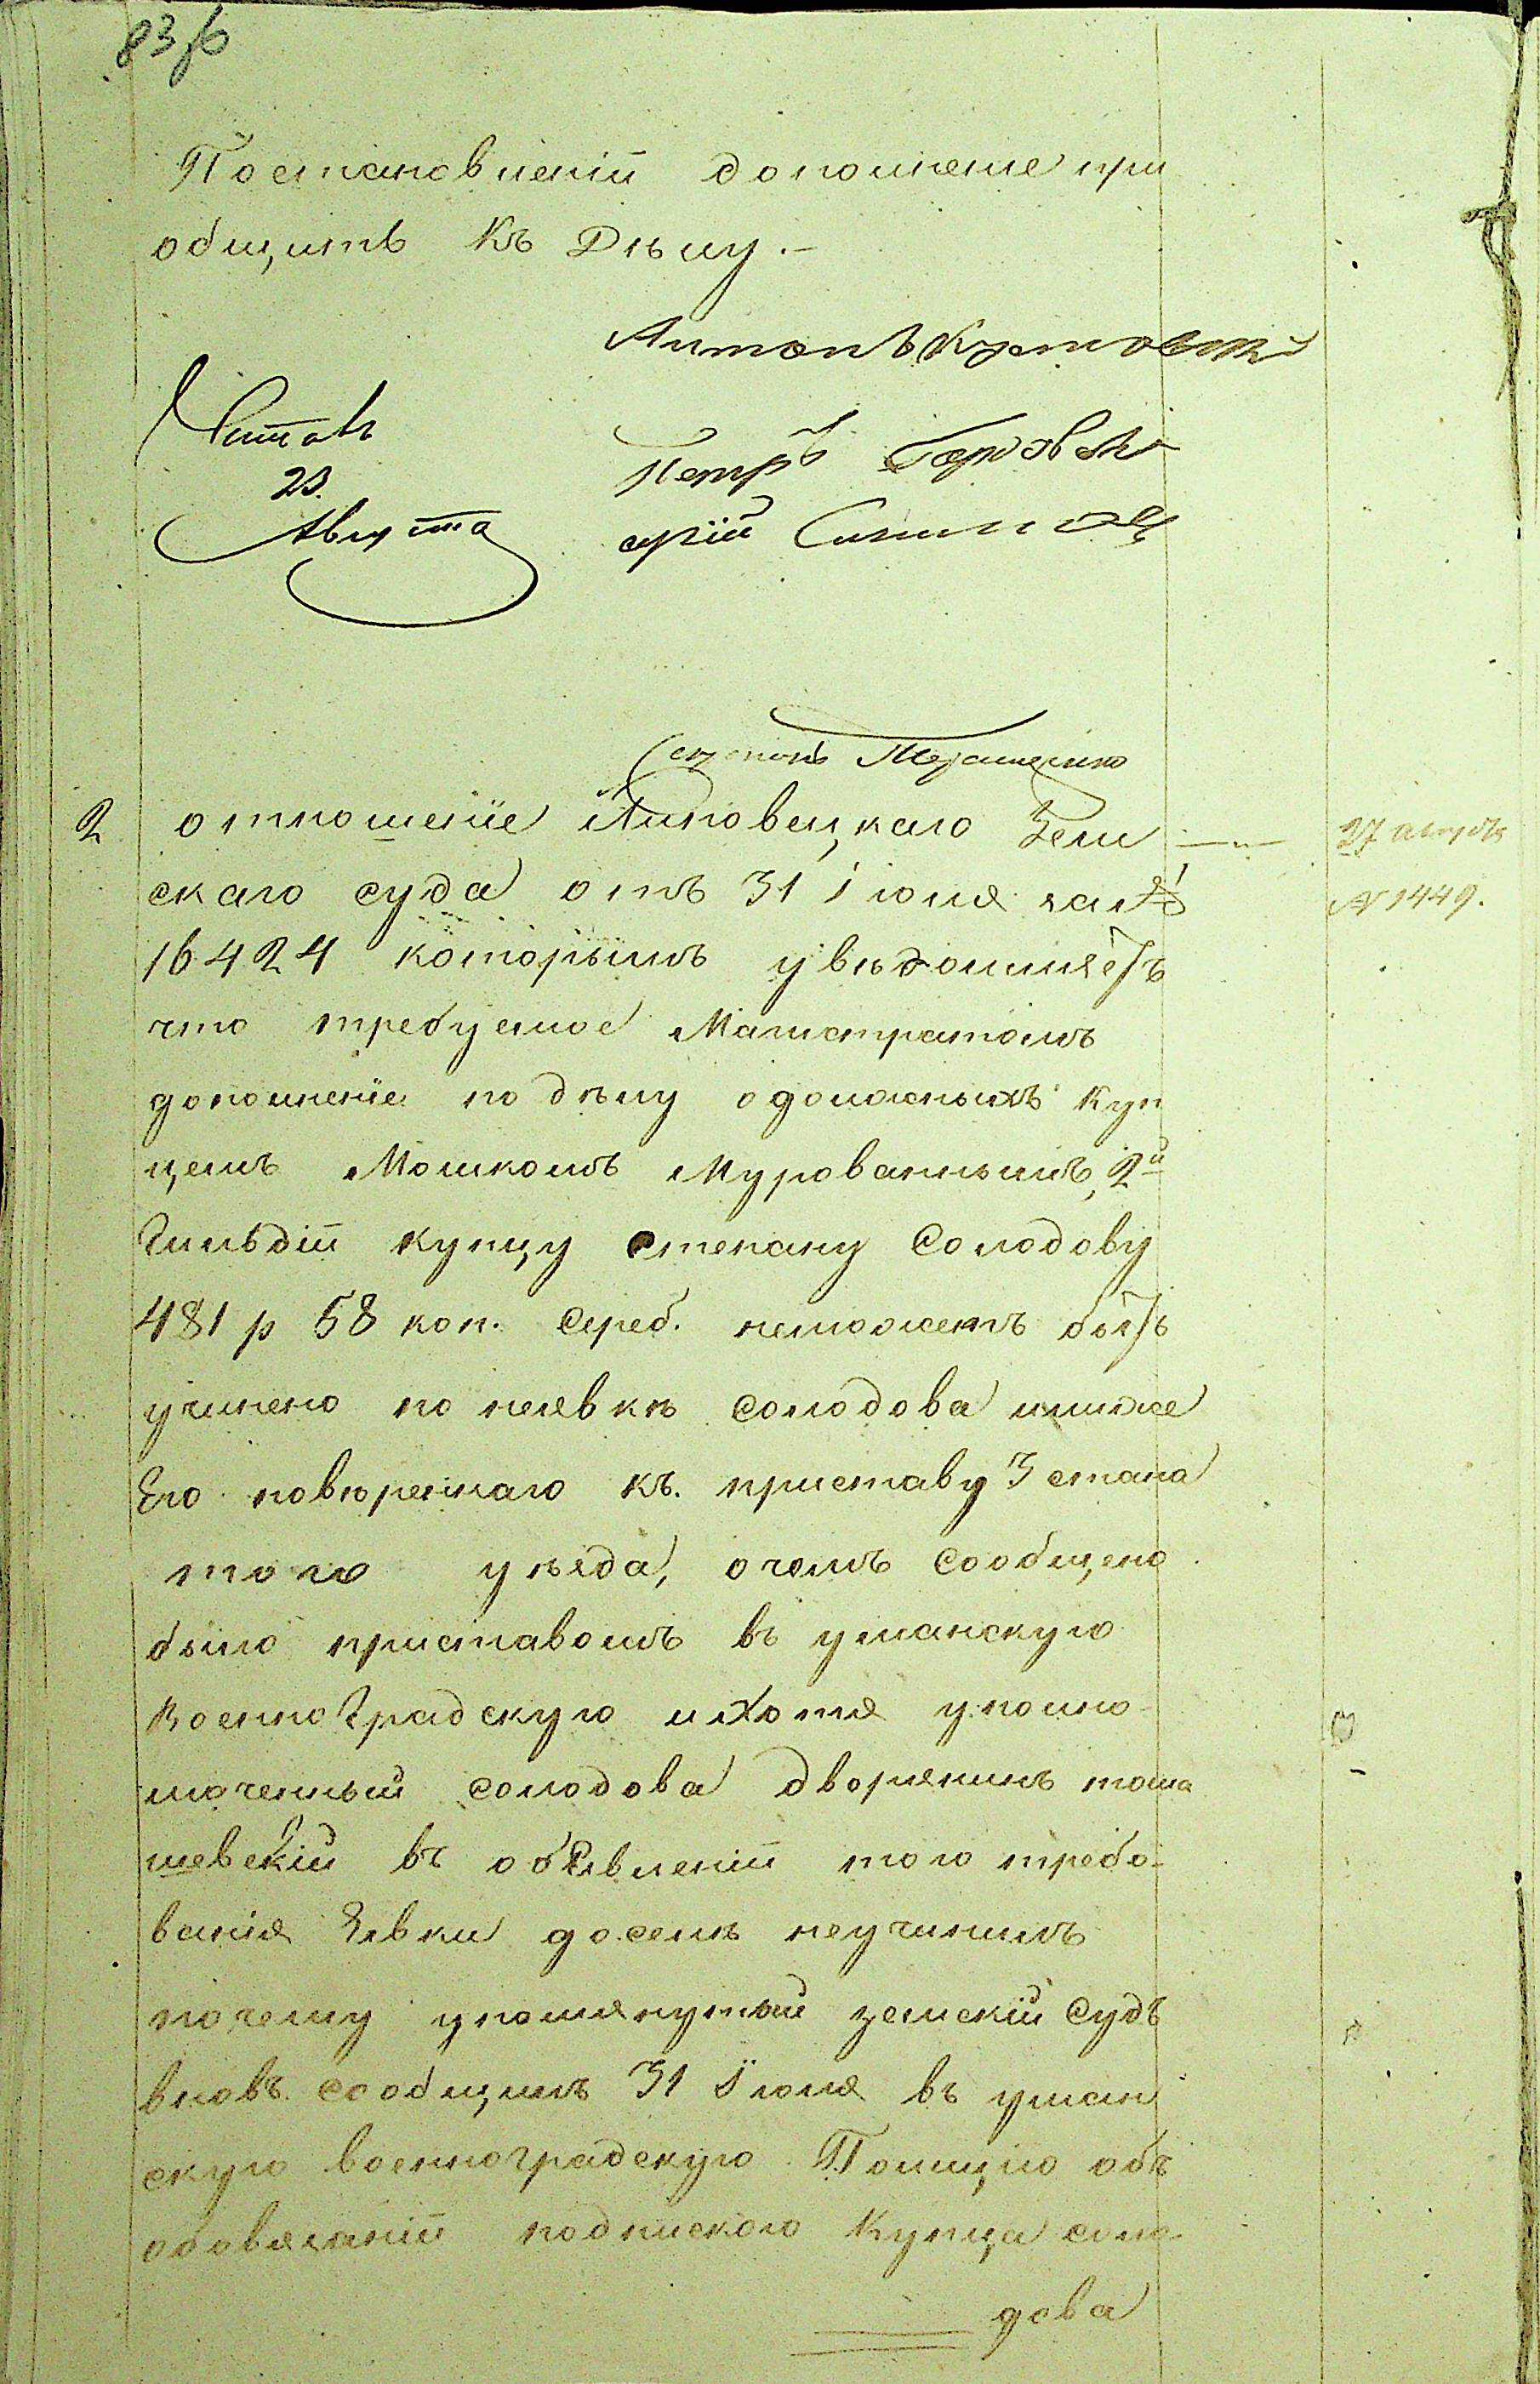 83
Постановленіи дополненіе при
общить къ Дѣлу. —
Антонъ
Читалъ
23.
Августа
Петръ
2 отношеніе Липовецкаго Зем
27 августа
скаго суда отъ 31 іюля за №
№ 1449.
16424 которымъ увѣдомляетъ
что требуемое Магистратомъ
дополненіе по дѣлу одолжныхъ куп
цемъ Мошкомъ Мурованнымъ, 2й
Гильдіи купцу Степану Солодову
481 р 58 коп. сереб. неможетъ быть
учинено по неявкѣ Солодова илиже
Его повѣреннаго къ приставу 3 стана
того уѣзда, очемъ сообщено
было приставомъ въ уманскую
военноградскую ихотя уполно-
моченный Солодова дворянинъ тома
шевскій въ объявленіи того требо-
ванія явки доселѣ неучинилъ
почему упомянутый земскій судъ
вновь сообщилъ 31 Іюля въ уман
скую военноградскую Полицію объ
обовязаніи подпискою купца Соло
дова